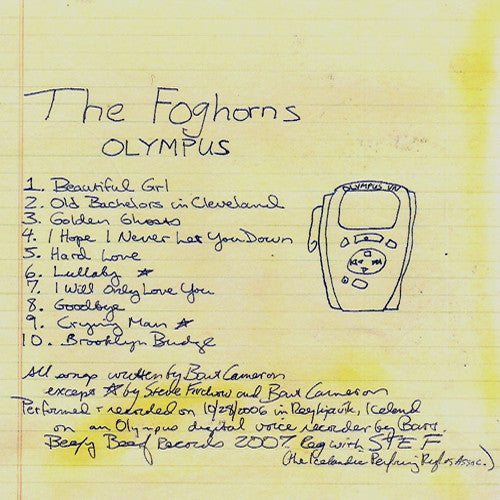 The Foghorns
OLYMPUS
1. Beautiful Girl
2. Old Bachelors in Cleveland
3. Golden Ghosts
4. I Hope I Never Let You Down
5. Hard Love
6. Lullaby ☆
7. I Will Only Love You
8. Goodbye
9. Crying Man ☆
10. Brooklyn Bridge
OLYMPUS VN
All songs written by Bart Cameron
except ☆ by Steve and Bart Cameron
Performed + recorded on 10/28/2006 in Reykjavik, Iceland
on an Olympus digital voice recorder by Bart.
Beefy Beef Records 2007. Reg with STEF
(the Icelandic Perforing Rights Assoc.)